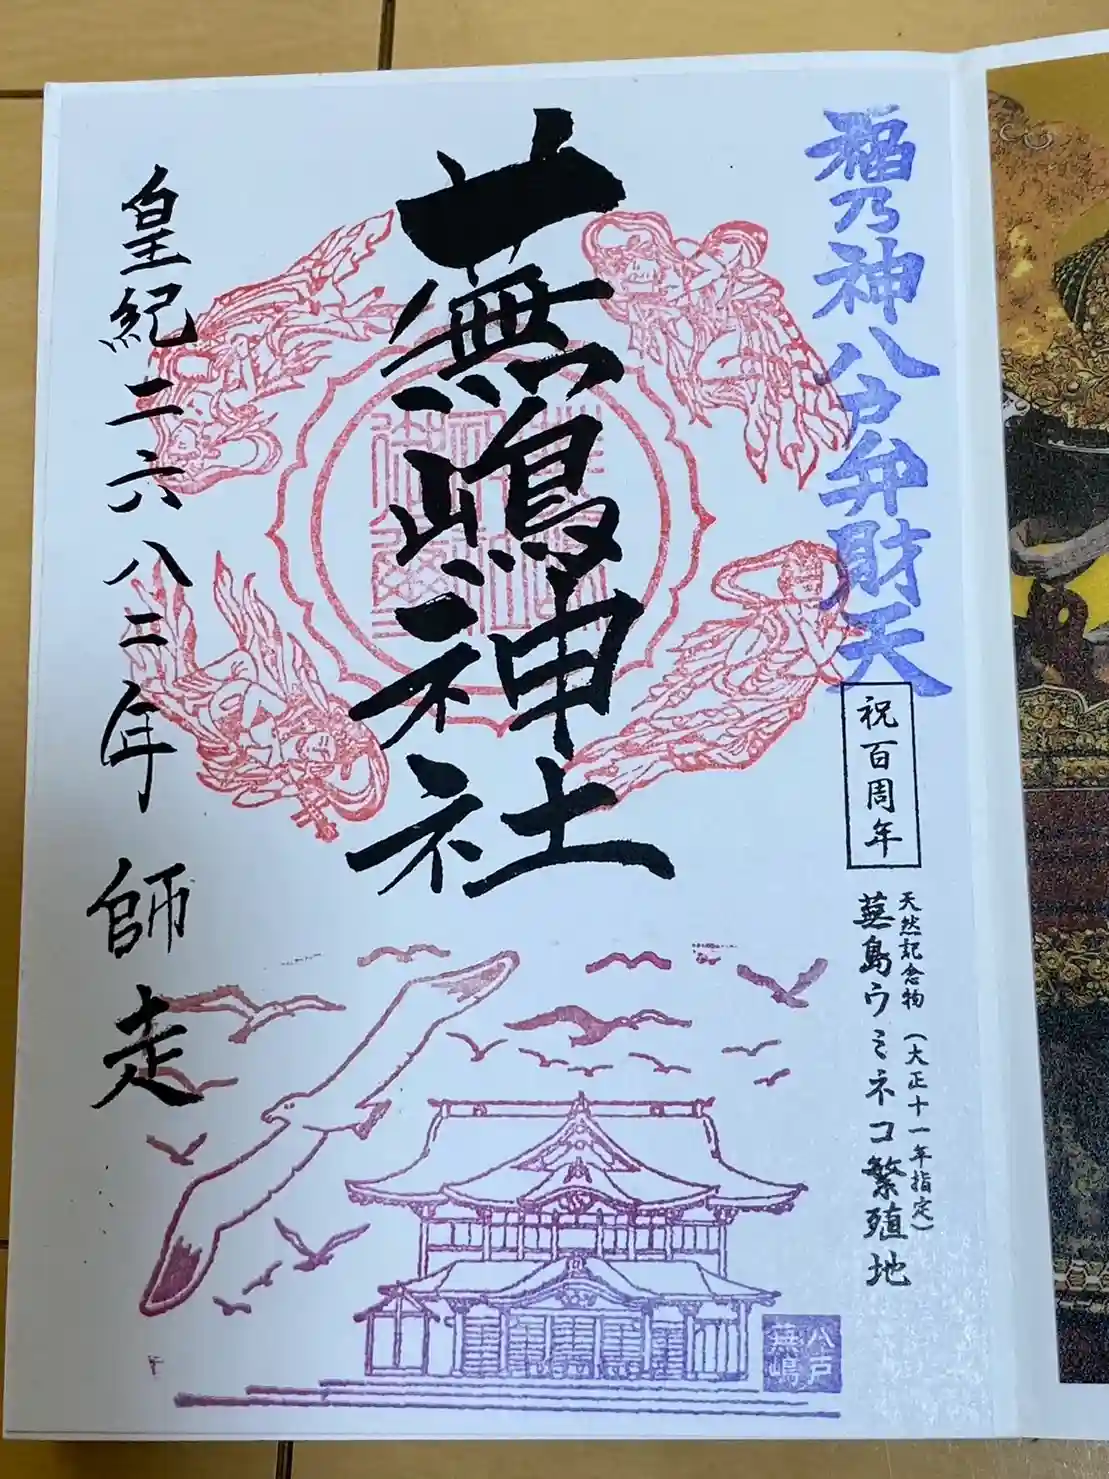 福乃神八戸弁財天
祝百周年
天然記念物（大正十一年指定）
蕪島ウミネコ繁殖地
蕪嶋神社
皇紀二六八二年 師走
八戸
蕪嶋